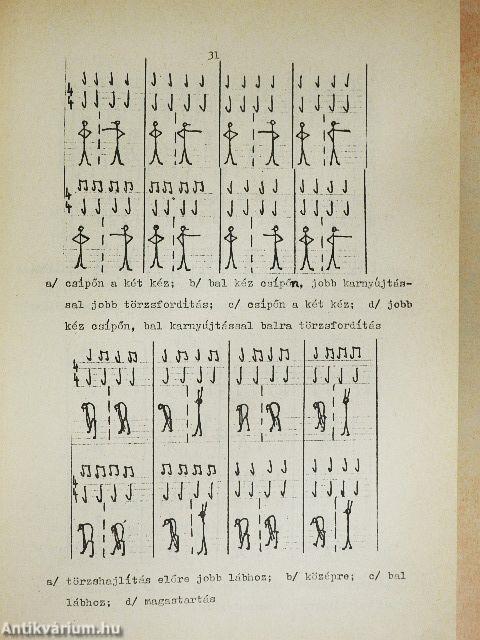 31
4
4
4
4
a/ csipőn a két kéz; b/ bal kéz csípőn, jobb karnyújtás-
sal jobb törzsfordítás; c/ csipőn a két kéz; d/ jobb
kéz csípőn, bal karnyújtással balra törzsfordítás
4
4
4
4
a/ törzshajlítás előre jobb lábhoz; b/ középre; c/ bal
lábhoz; d/ magastartás
Antikvárium.hu